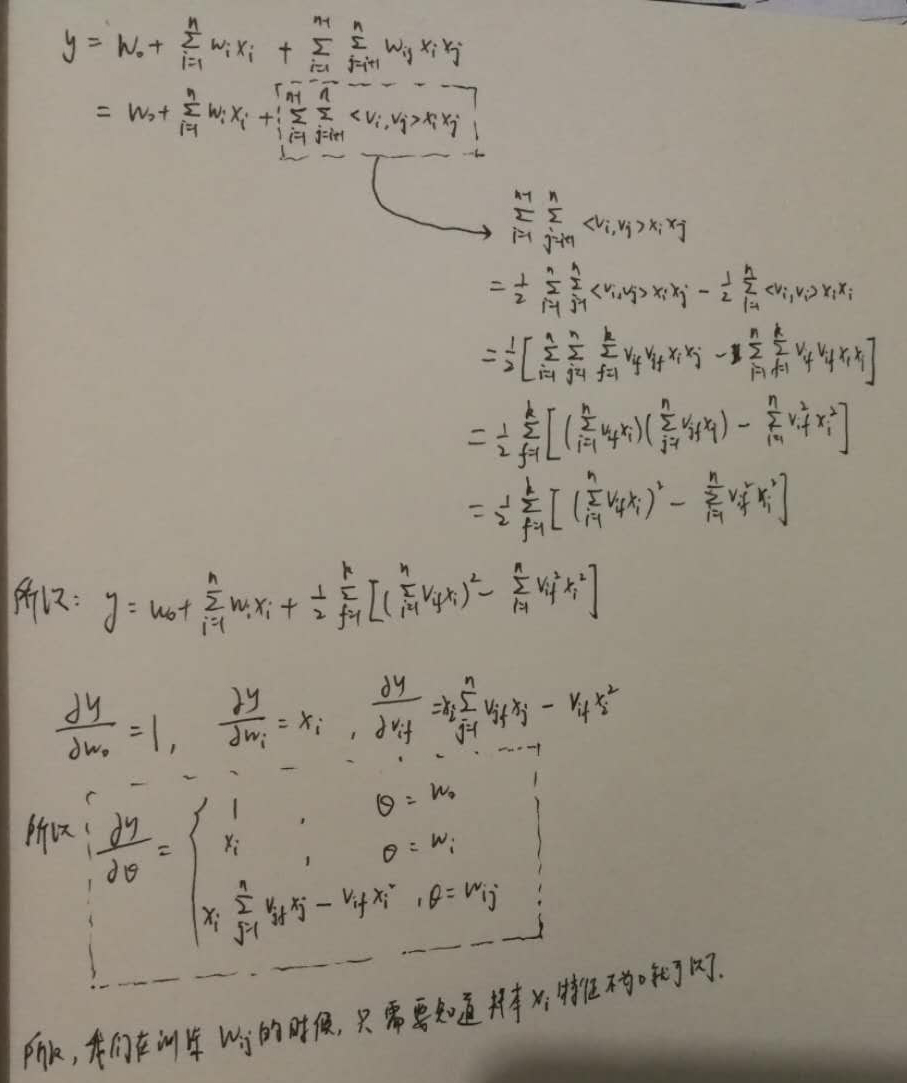 y = w₀ + Σ_{i=1}^{n} wᵢxᵢ + Σ_{i=1}^{n-1} Σ_{j=i+1}^{n} w_{ij} xᵢxⱼ
= w₀ + Σ_{i=1}^{n} wᵢxᵢ + Σ_{i=1}^{n-1} Σ_{j=i+1}^{n} <vᵢ,vⱼ>xᵢxⱼ
Σ_{i=1}^{n-1} Σ_{j=i+1}^{n} <vᵢ,vⱼ>xᵢxⱼ
= 1/2 Σ_{i=1}^{n} Σ_{j=1}^{n} <vᵢ,vⱼ>xᵢxⱼ - 1/2 Σ_{i=1}^{n} <vᵢ,vᵢ>xᵢxᵢ
= 1/2 [Σ_{i=1}^{n} Σ_{j=1}^{n} Σ_{f=1}^{k} v_{if}v_{jf}xᵢxⱼ - Σ_{i=1}^{n} Σ_{f=1}^{k} v_{if}v_{if}xᵢxᵢ]
= 1/2 Σ_{f=1}^{k} [(Σ_{i=1}^{n} v_{if}xᵢ)(Σ_{j=1}^{n} v_{jf}xⱼ) - Σ_{i=1}^{n} v_{if}²xᵢ²]
= 1/2 Σ_{f=1}^{k} [(Σ_{i=1}^{n} v_{if}xᵢ)² - Σ_{i=1}^{n} v_{if}²xᵢ²]
所以: y = w₀ + Σ_{i=1}^{n} wᵢxᵢ + 1/2 Σ_{f=1}^{k} [(Σ_{i=1}^{n} v_{if}xᵢ)² - Σ_{i=1}^{n} v_{if}²xᵢ²]
∂y/∂w₀ = 1, ∂y/∂wᵢ = xᵢ, ∂y/∂v_{if} = xᵢ Σ_{j=1}^{n} v_{jf}xⱼ - v_{if}xᵢ²
1, θ = w₀
所以: ∂y/∂θ = { xᵢ, θ = wᵢ
xᵢ Σ_{j=1}^{n} v_{jf}xⱼ - v_{if}xᵢ², θ = w_{ij}
所以, 我们在训练 w_{ij} 的时候, 只需要知道样本 xᵢ 特征不为0就可以了.